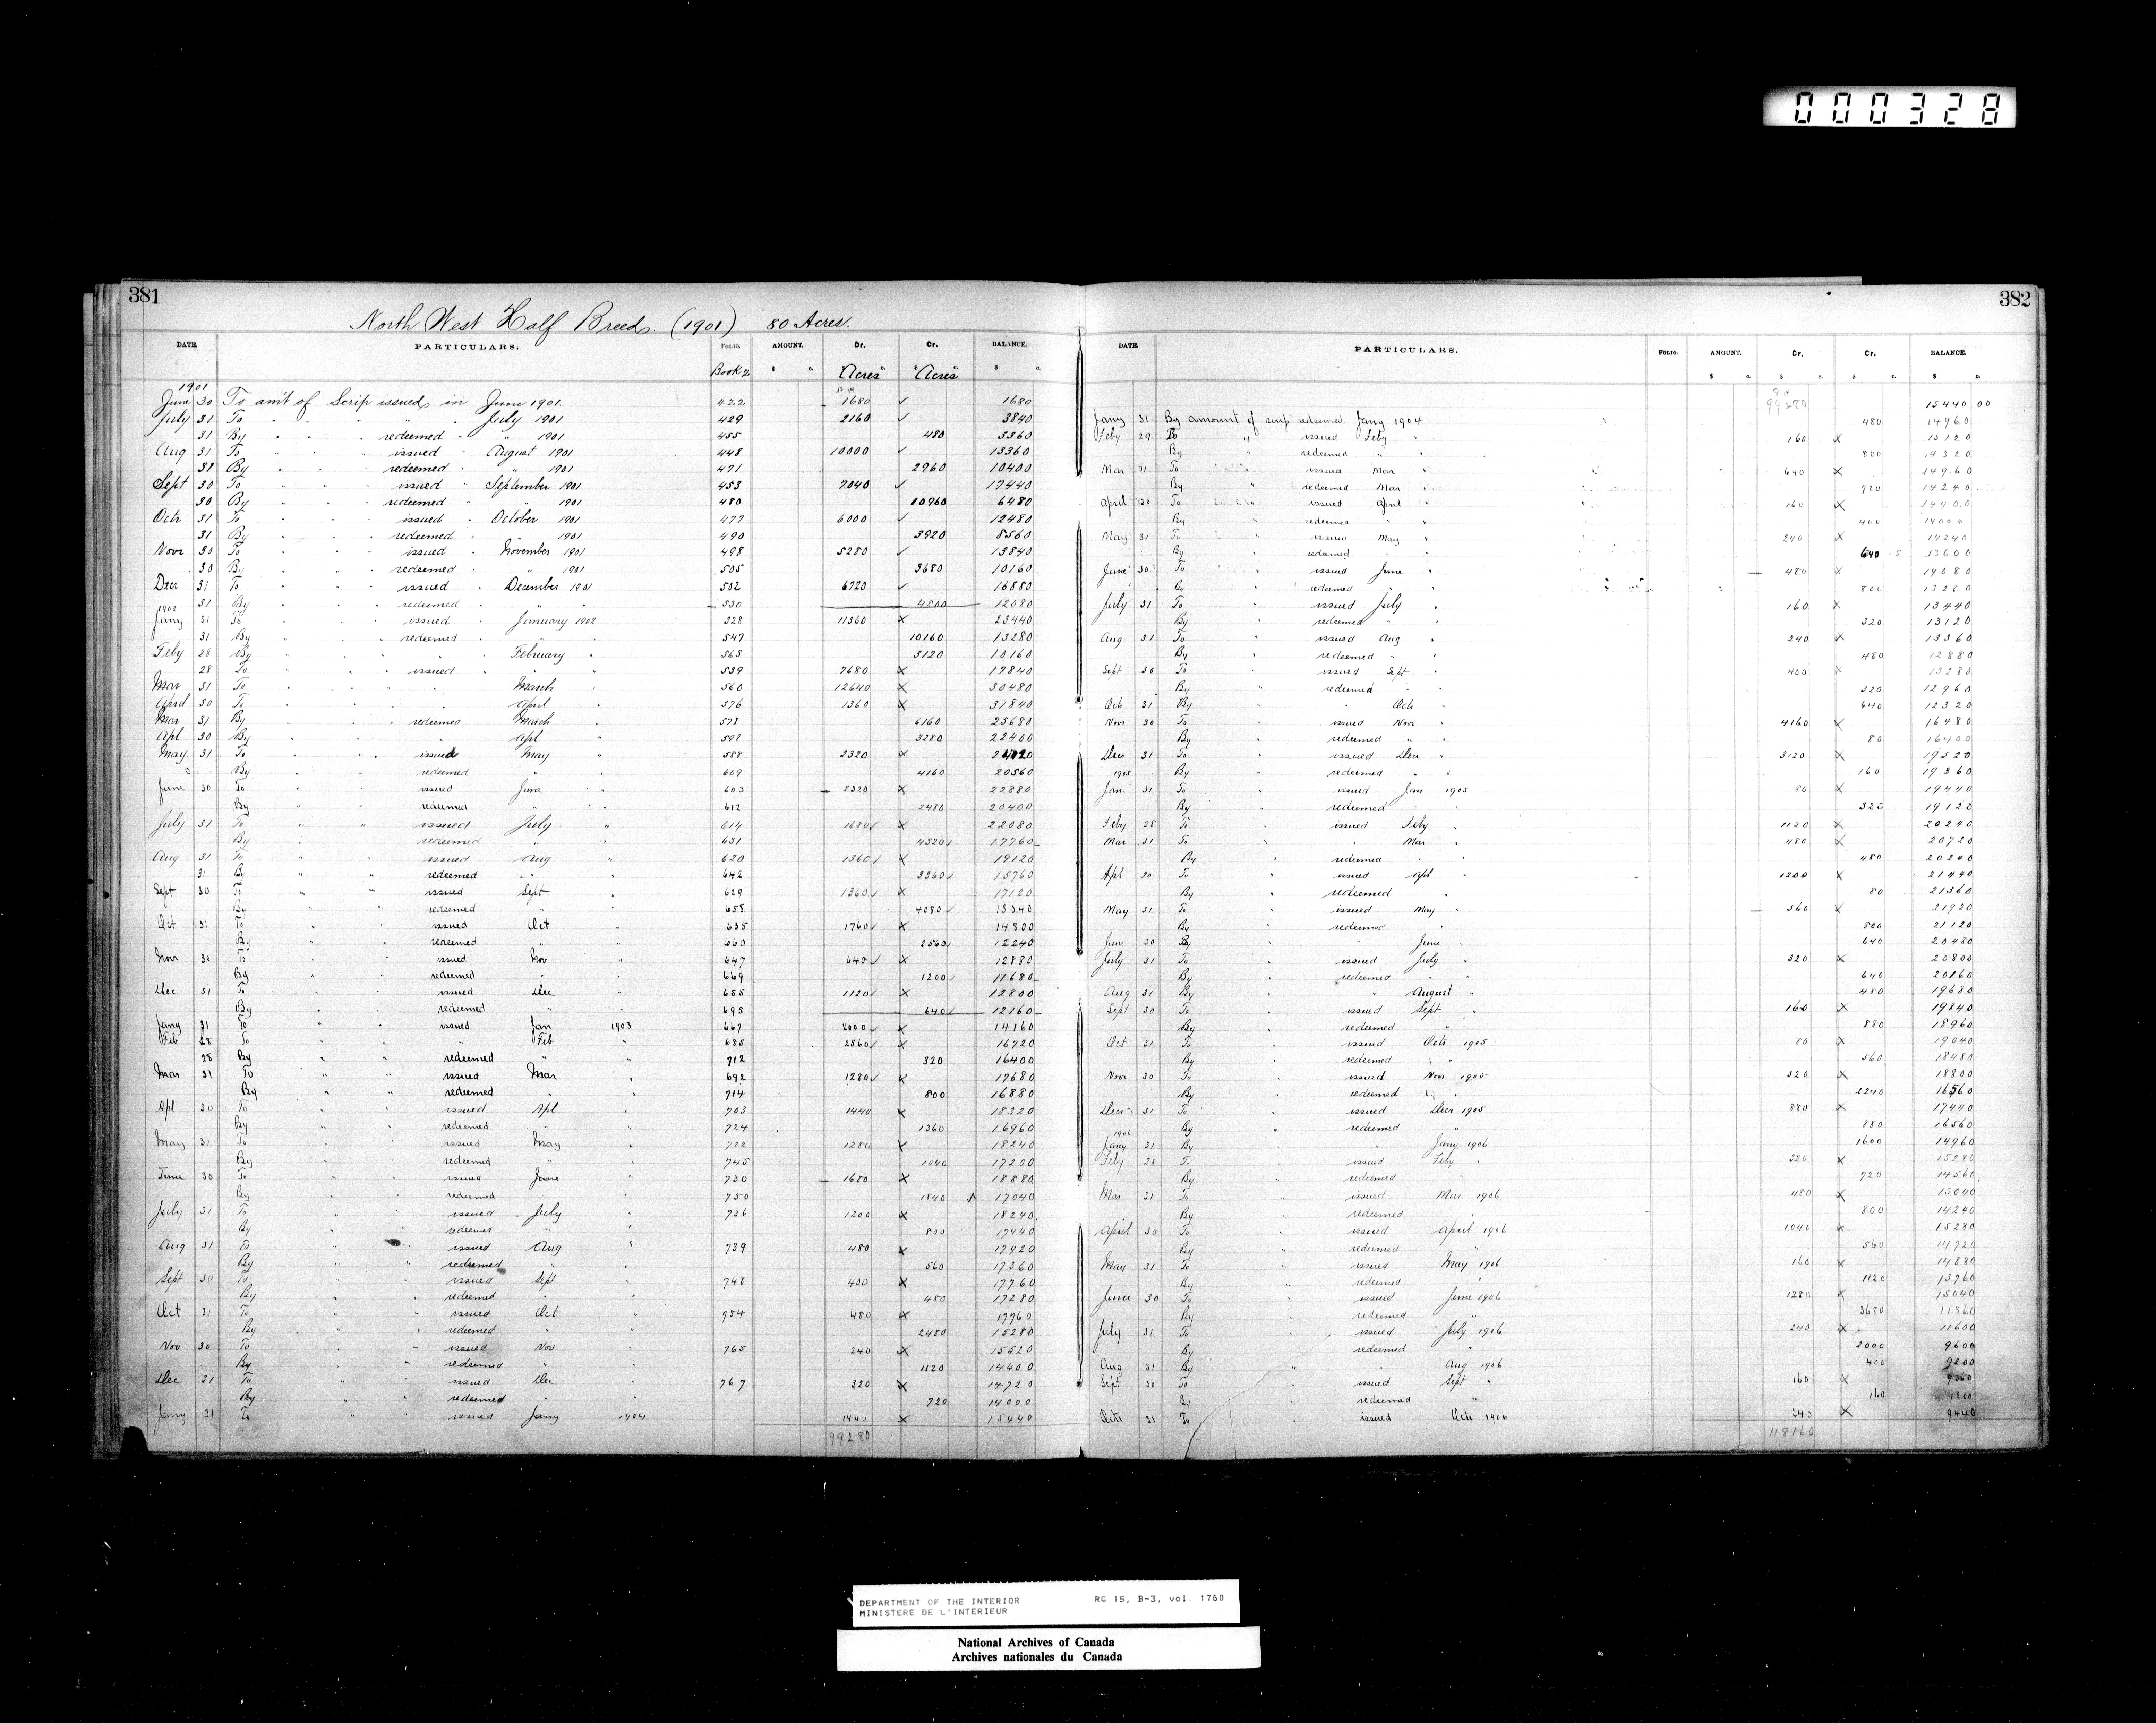 000328
381
North West Half Breeds (1901) 80 Acres.
DATE. PARTICULARS. FOLIO. AMOUNT. Dr. Cr. BALANCE.
Book 2 $ c Acres Acres $ c
1901
June 30 To am't of Scrip issued in June 1901. 422 1680 ✓ 1680
July 31 To " " " " July 1901 429 2160 ✓ 3840
31 By " " redeemed " " 1901 455 480 3360
Aug 31 To " " issued " August 1901 448 10000 ✓ 13360
31 By " " redeemed " " 1901 471 2960 10400
Sept 30 To " " issued " September 1901 453 7040 ✓ 17440
30 By " " redeemed " " 1901 480 10960 6480
Octr 31 To " " issued " October 1901 477 6000 ✓ 12480
31 By " " redeemed " " 1901 490 3920 8560
Novr 30 To " " issued " November 1901 498 5280 ✓ 13840
30 By " " redeemed " " 1901 505 3680 10160
Decr 31 To " " issued " December 1901 502 6720 ✓ 16880
31 By " " redeemed " " 530 4800 12080
1902
Jany 31 To " " issued " January 1902 528 11360 x 23440
31 By " " redeemed " " 547 10160 13280
Feby 28 By " " " February " 563 3120 10160
28 To " " issued " " 539 7680 x 17840
Mar 31 To " " " March " 560 12640 x 30480
April 30 To " " " April " 576 1360 x 31840
Mar 31 By " " redeemed March " 578 6160 25680
Apl 30 By " " " Apl " 598 3280 22400
May 31 To " " issued May " 588 2320 x 24720
By " " redeemed " " 609 4160 20560
June 30 To " " issued June " 603 2320 x 22880
By " " redeemed " " 612 2480 20400
July 31 To " " issued July " 614 1680 ✓ x 22080
By " " redeemed " " 631 4320 ✓ 17760
Aug 31 To " " issued Aug " 620 1360 ✓ x 19120
31 By " " redeemed " " 642 3360 ✓ 15760
Sept 30 To " " issued Sept " 629 1360 ✓ x 17120
By " " redeemed " " 658 4080 ✓ 13040
Oct 31 To " " issued Oct " 635 1760 ✓ x 14800
By " " redeemed " " 660 2560 ✓ 12240
Novr 30 To " " issued Nov " 647 640 ✓ x 12880
By " " redeemed " " 669 1200 ✓ 11680
Dec 31 To " " issued Dec " 655 1120 ✓ x 12800
By " " redeemed " " 695 640 ✓ 12160
Jany 31 To " " issued Jan 1903 667 2000 ✓ x 14160
Feb 28 To " " " Feb " 685 2560 ✓ x 16720
28 By " " redeemed " " 712 320 16400
Mar 31 To " " issued Mar " 692 1280 ✓ x 17680
By " " redeemed " 714 800 16880
Apl 30 To " " issued Apl " 703 1440 x 18320
By " " redeemed " " 724 1360 16960
May 31 To " " issued May " 722 1280 x 18240
By " " redeemed " " 745 1040 17200
June 30 To " " issued June " 730 1680 x 18880
By " " redeemed " " 750 1840 17040
July 31 To " " issued July " 736 1200 x 18240
By " " redeemed " " 800 17440
Aug 31 To " " issued Aug " 739 480 x 17920
By " " redeemed " " 560 17360
Sept 30 To " " issued Sept " 748 400 x 17760
By " " redeemed " " 480 17280
Oct 31 To " " issued Oct " 754 480 x 17760
By " " redeemed " " 2480 15280
Nov 30 To " " issued Nov " 765 240 x 15520
By " " redeemed " " 1120 14400
Dec 31 To " " issued Dec " 767 320 x 14720
By " " redeemed " " 720 14000
Jany 31 To " " issued Jany 1904 1440 x 15440
99280
382
DATE. PARTICULARS. FOLIO. AMOUNT. Dr. Cr. BALANCE.
$ c. $ c. $ c. $ c
99280 15440 00
Jany 31 By amount of scrip redeemed Jany 1904 480 14960
Feby 29 To " issued Feby " 160 x 15120
By " redeemed " " 800 14320
Mar 31 To " issued Mar " 640 x 14960
By " redeemed Mar " 720 14240
April 30 To " issued April " 160 x 14400
By " redeemed " " 400 14000
May 31 To " issued May " 240 x 14240
By " redeemed " 640 13600
June 30 To " issued June " 480 x 14080
By " redeemed " 800 13280
July 31 To " issued July " 160 x 13440
By " redeemed " 320 13120
Aug 31 To " issued Aug " 240 x 13360
By " redeemed " 480 12880
Sept 30 To " issued Sept " 400 x 13280
By " redeemed " " 320 12960
Oct 31 By " " Oct " 640 12320
Novr 30 To " issued Novr " 4160 x 16480
By " redeemed " " 80 16400
Decr 31 To " issued Decr " 3120 x 19520
1905 By " redeemed " " 160 19360
Jan 31 To " issued Jan 1905 80 x 19440
By " redeemed " " 320 19120
Feby 28 To " issued Feby " 1120 x 20240
Mar 31 To " " Mar " 480 x 20720
By " redeemed " " 480 20240
Apl 30 To " issued Apl " 1200 x 21440
By " redeemed " 80 21360
May 31 To " issued May " 560 x 21920
By " redeemed " 800 21120
June 30 By " " June " 640 20480
July 31 To " issued July " 320 x 20800
By " redeemed " " 640 20160
Aug 31 By " " August " 480 19680
Sept 30 To " issued Sept " 160 x 19840
By " redeemed " 880 18960
Oct 31 To " issued Octr 1905 80 x 19040
By " redeemed " " 560 18480
Novr 30 To " issued Novr 1905 320 x 18800
By " redeemed " " 2240 16560
Decr 31 To " issued Decr 1905 880 x 17440
1906 By " redeemed " 880 16560
Jany 31 By " " Jany 1906 1600 14960
Feby 28 To " issued Feby " 320 x 15280
By " redeemed " 720 14560
Mar 31 To " issued Mar 1906 480 x 15040
By " redeemed " 800 14240
April 30 To " issued April 1906 1040 x 15280
By " redeemed " 560 14720
May 31 To " issued May 1906 160 x 14880
By " redeemed " 1120 13760
June 30 To " issued June 1906 1280 x 15040
By " redeemed " 3680 11360
July 31 To " issued July 1906 240 x 11600
By " redeemed " 2000 9600
Aug 31 By " " Aug 1906 400 9200
Sept 30 To " issued Sept " 160 x 9360
By " redeemed " 160 9200
Octr 31 To " issued Octr 1906 240 x 9440
118160
DEPARTMENT OF THE INTERIOR RG 15, B-3, vol. 1760
MINISTERE DE L'INTERIEUR
National Archives of Canada
Archives nationales du Canada